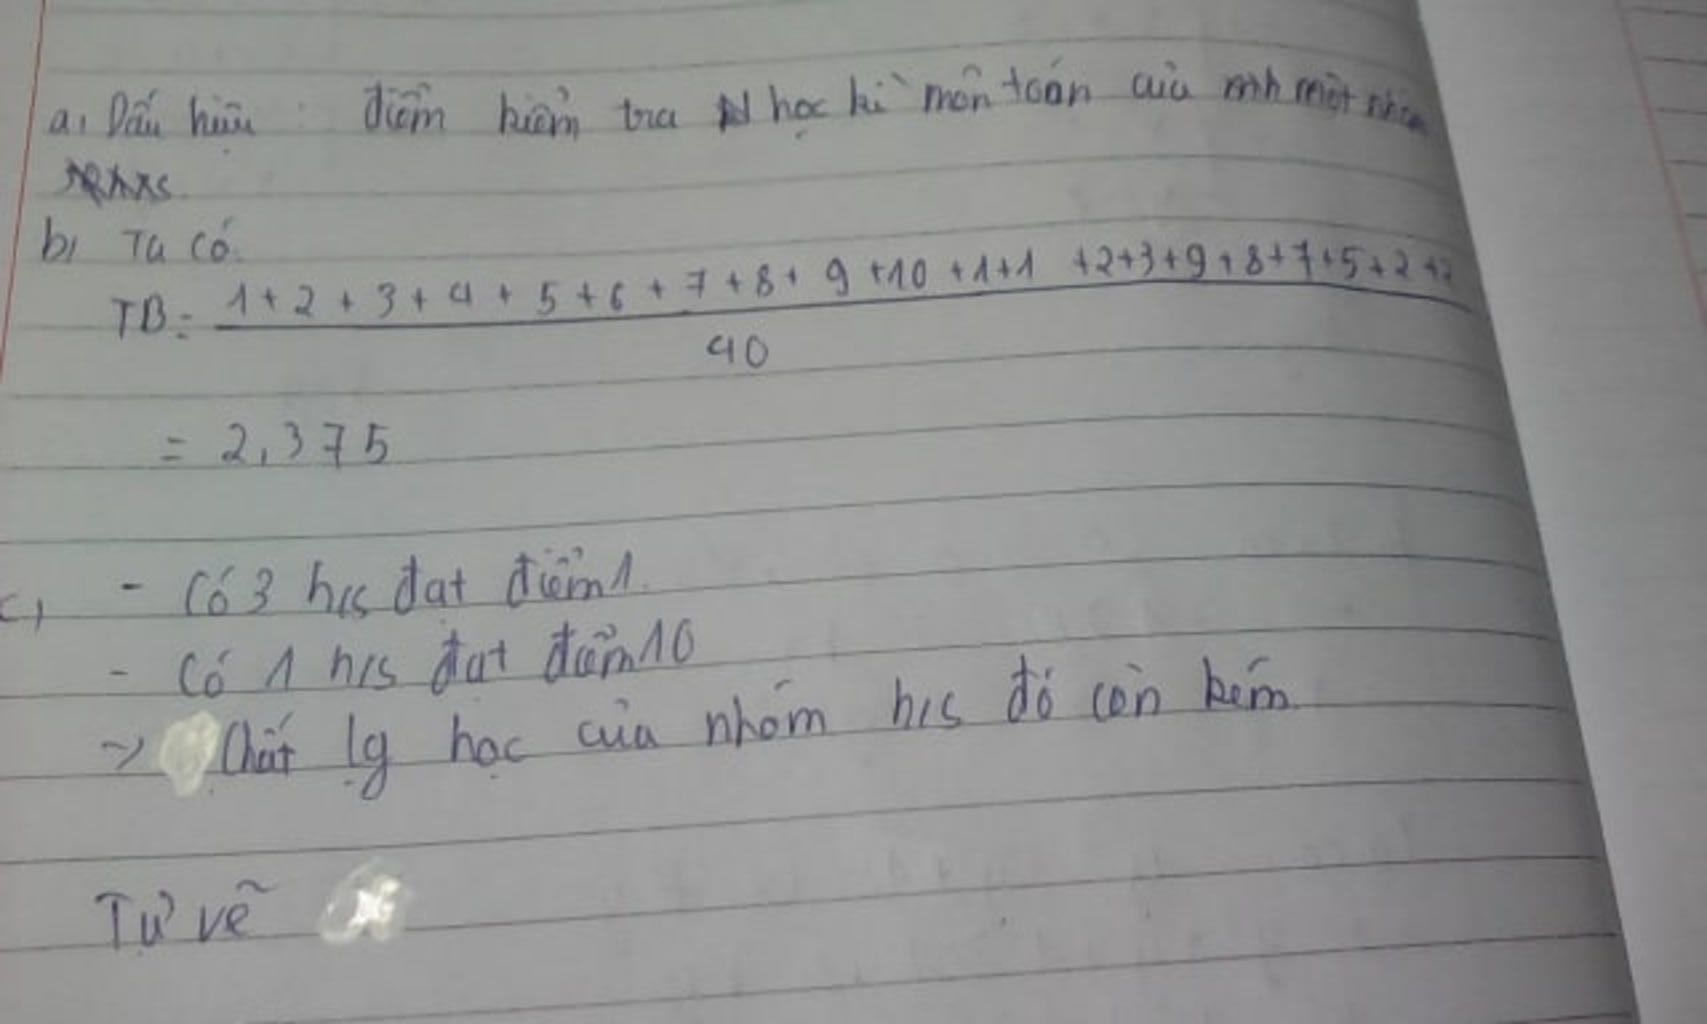 a, Dấu hiệu : điểm kiểm tra học kì môn toán của một nhóm
b, Ta có
TB = 1 + 2 + 3 + 4 + 5 + 6 + 7 + 8 + 9 + 10 + 1 + 1 + 2 + 3 + 9 + 8 + 7 + 5 + 2 + 2
40
= 2,375
c, - Có 3 h/s đạt điểm 1.
- Có 1 h/s đạt điểm 10
=> Chất lg học của nhóm h/s đó còn kém
Tự vẽ